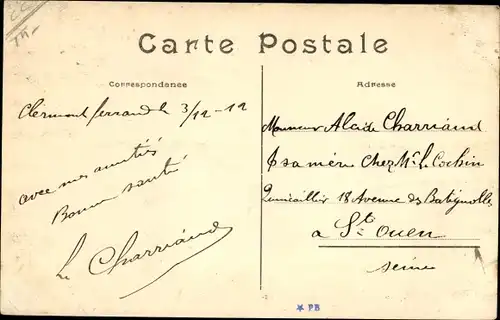 Carte Postale
Correspondance
Adresse
Clermont ferrand le 3/12-12
avec mes amitiés
Bonne santé
L. Charriand
Monsieur Alcide Charriand
sa mère Chez Mr L. Cochin
Quincaillier 18 Avenue des Batignolles
a St Ouen
Seine
PB